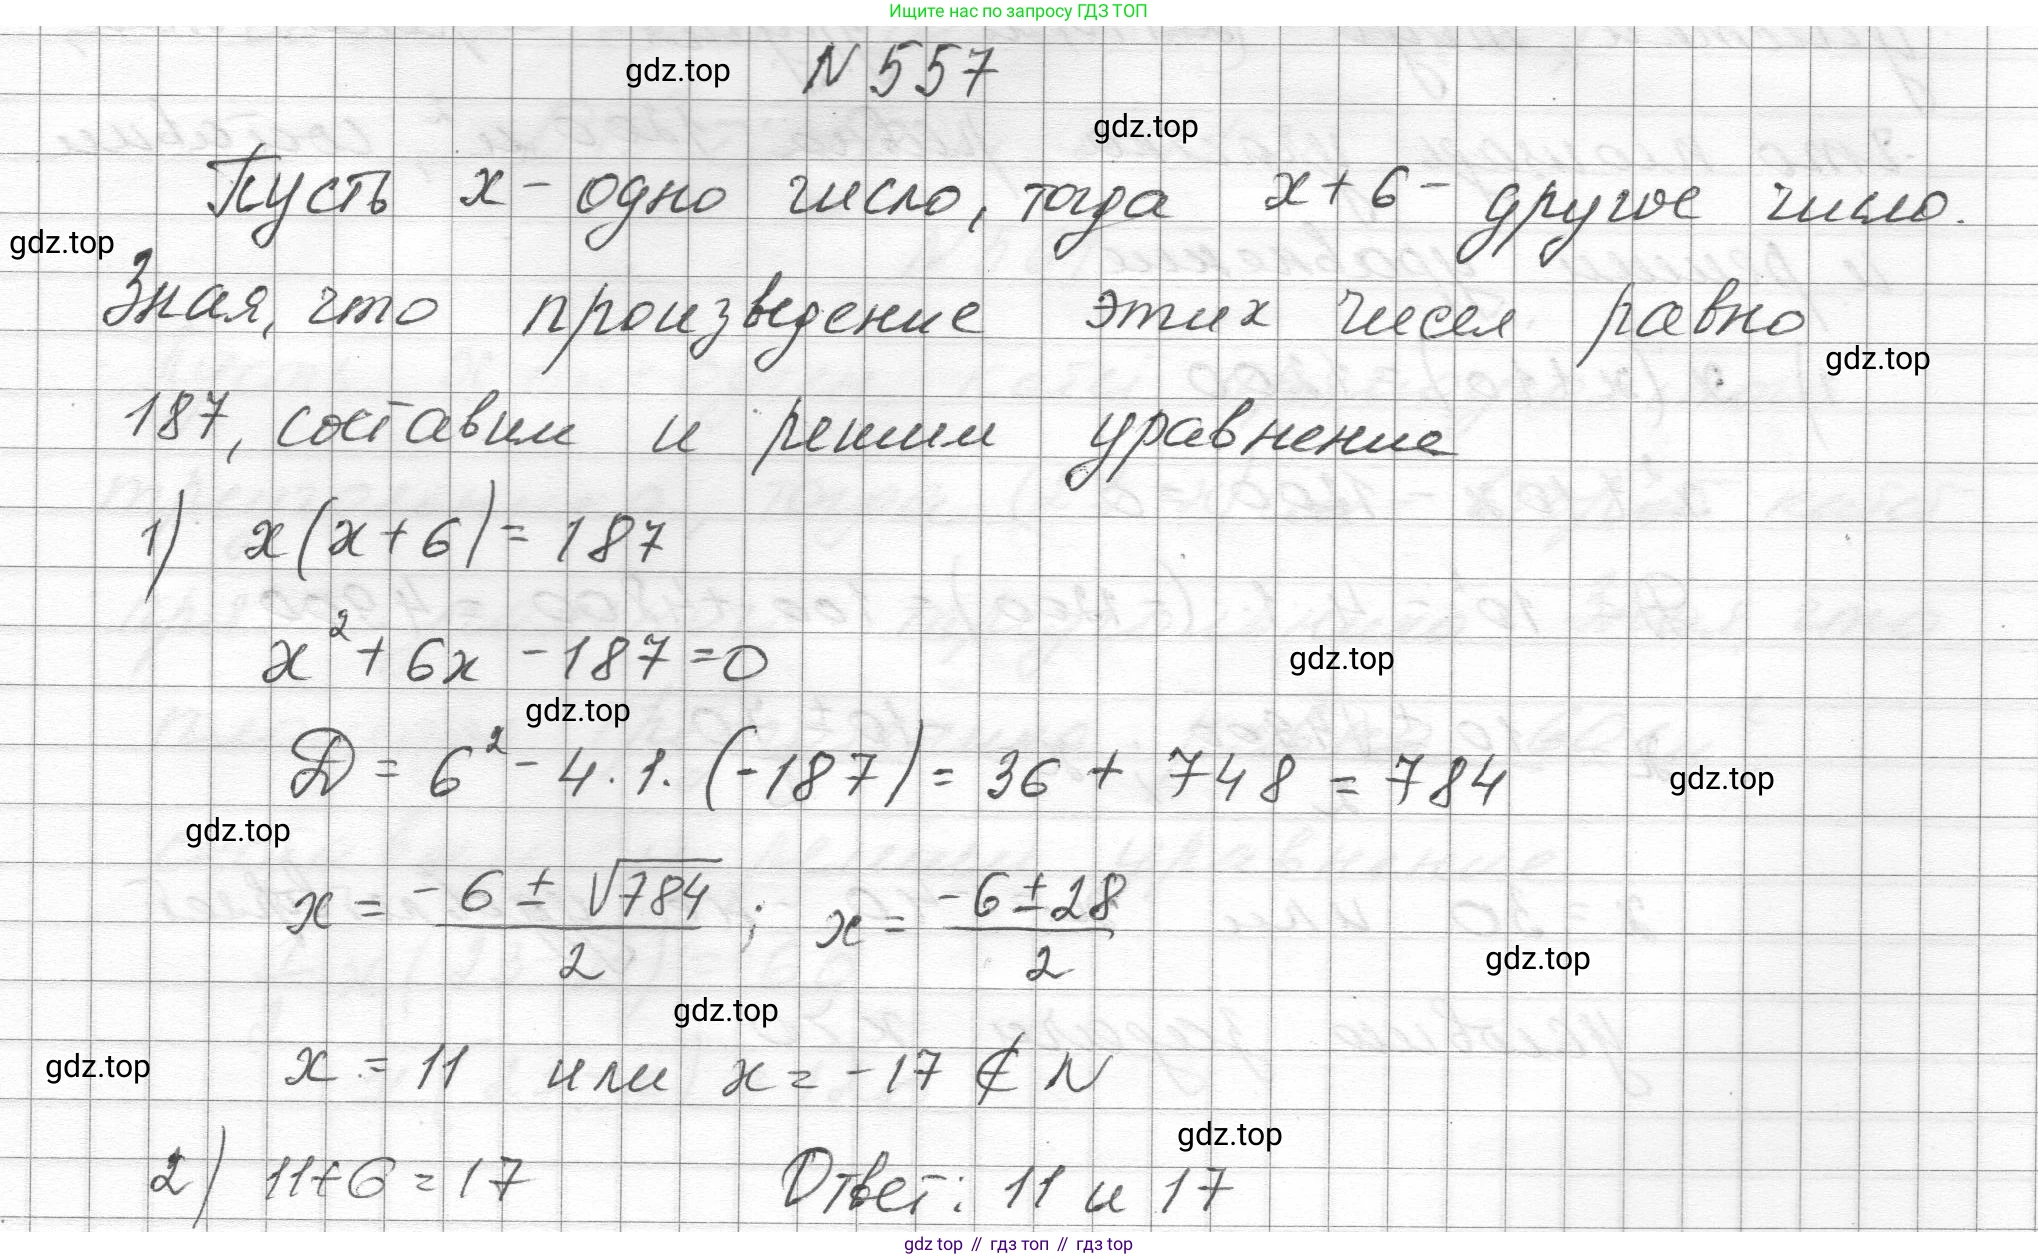 Ищите нас по запросу ГДЗ ТОП
gdz.top N 557
gdz.top
Пусть x - одно число, тогда x + 6 - другое число.
gdz.top
Зная, что произведение этих чисел равно
gdz.top
187, составим и решим уравнение
1) x(x+6) = 187
x² + 6x - 187 = 0
gdz.top
gdz.top
D = 6² - 4 · 1 · (-187) = 36 + 748 = 784
gdz.top
gdz.top
x = (-6 ± √784)/2 ; x = (-6 ± 28)/2
gdz.top
gdz.top
x = 11 или x = -17 ∉ N
gdz.top
gdz.top
2) 11+6 = 17 Ответ: 11 и 17
gdz top // гдз топ // gdz top